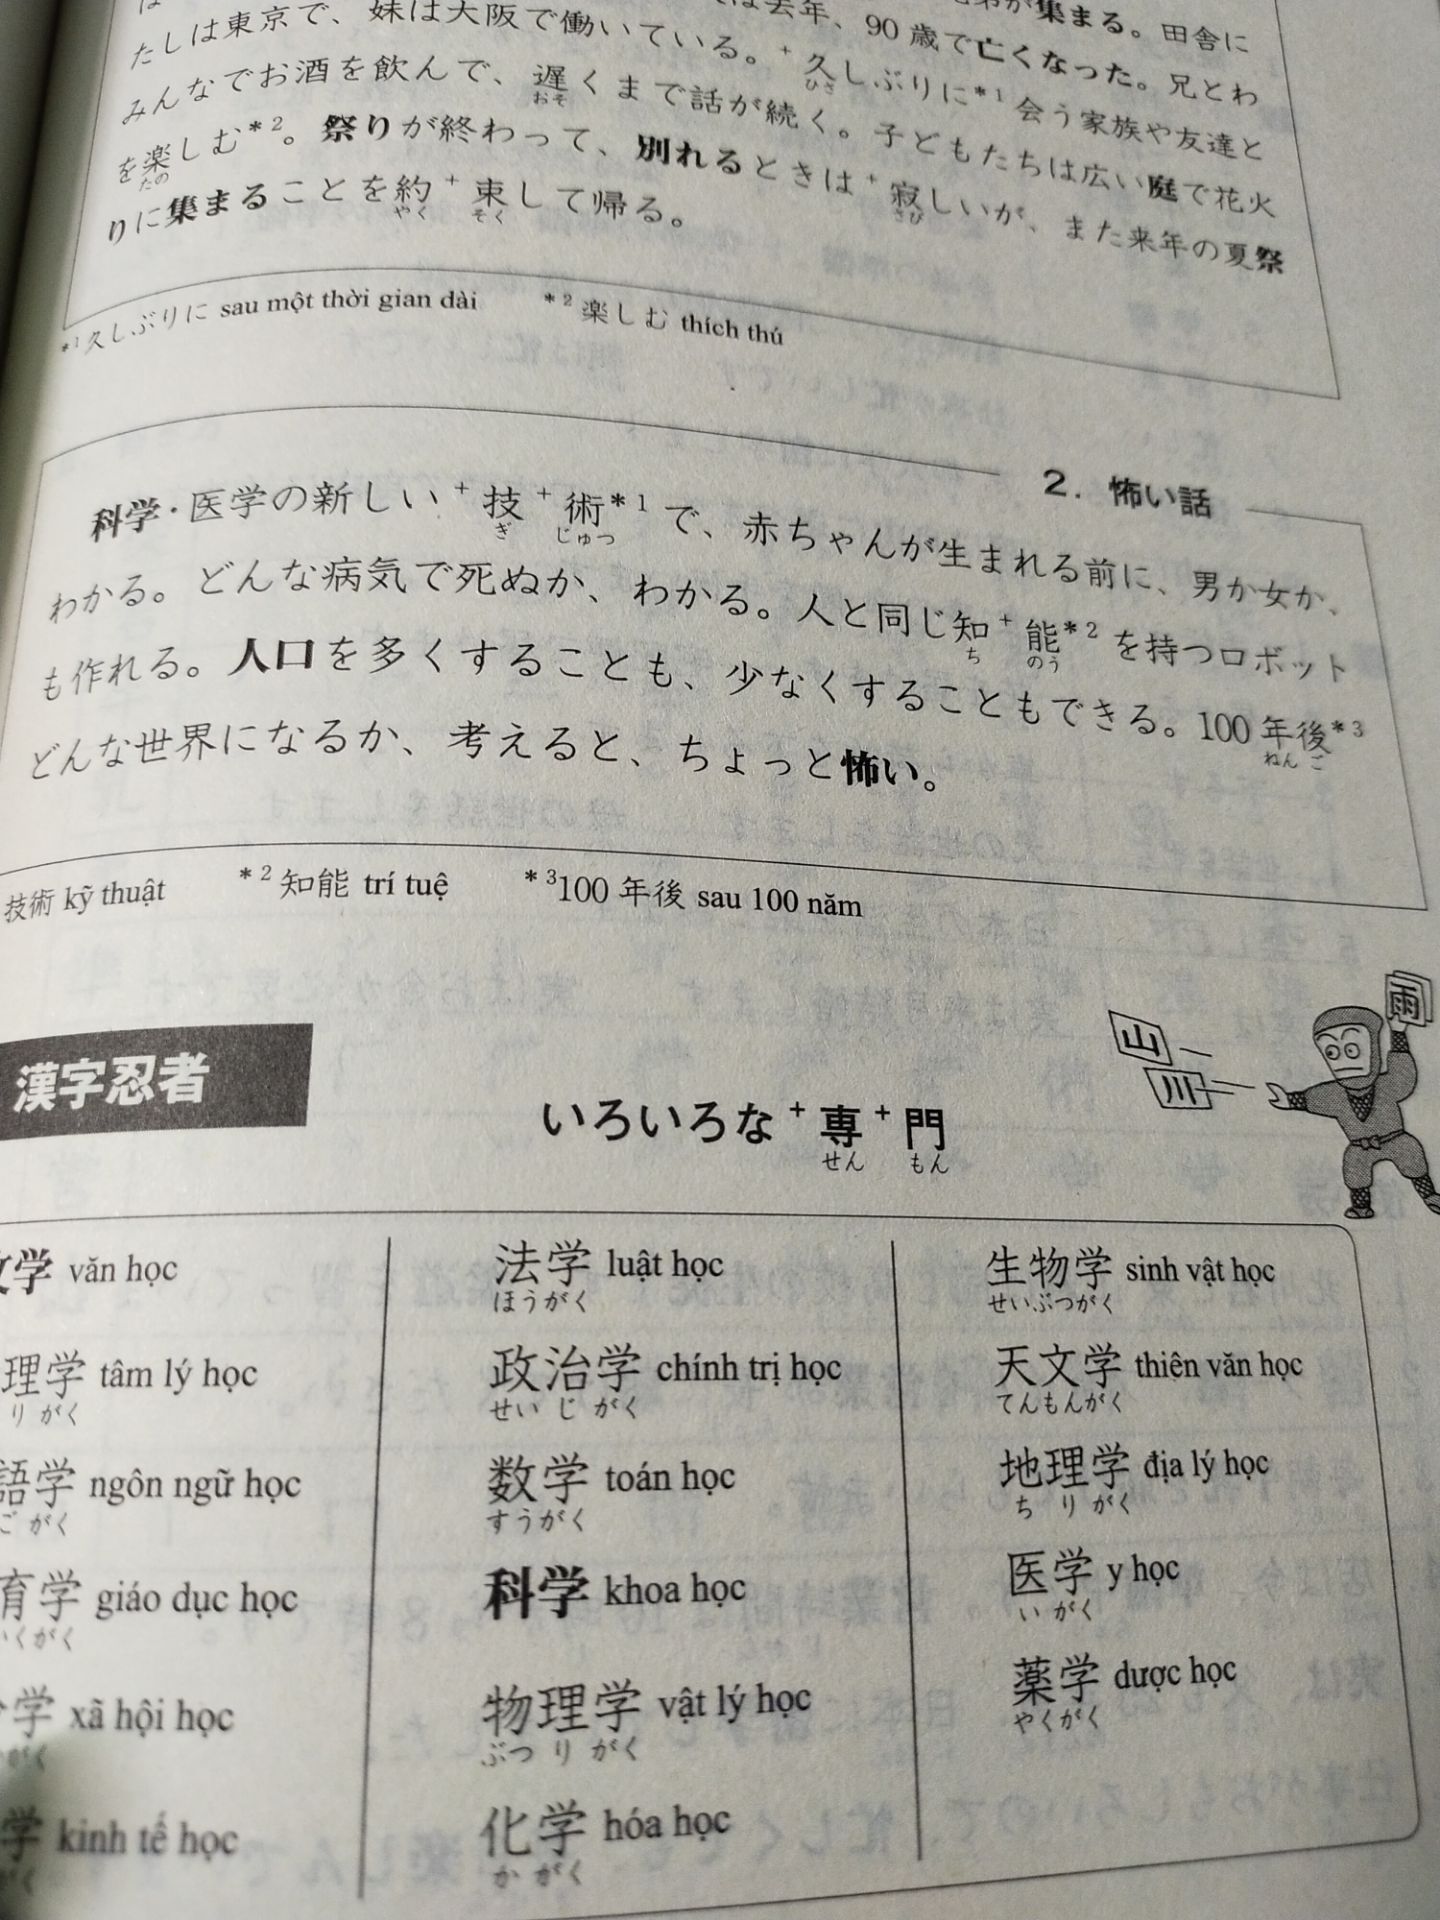 が集まる。田舎に
は去年、90歳で亡くなった。兄とわ
たしは東京で、妹は大阪で働いている。+久しぶりに*1会う家族や友達と
ひさ
みんなでお酒を飲んで、遅くまで話が続く。子どもたちは広い庭で花火
おそ
を楽しむ*2。祭りが終わって、別れるときは+寂しいが、また来年の夏祭
たの さび
りに集まることを約+束して帰る。
やく そく
*1久しぶりに sau một thời gian dài *2楽しむ thích thú
2. 怖い話
科学・医学の新しい+技+術*1で、赤ちゃんが生まれる前に、男か女か、
ぎ じゅつ
わかる。どんな病気で死ぬか、わかる。人と同じ知+能*2を持つロボット
ち のう
も作れる。人口を多くすることも、少なくすることもできる。100年後*3
ねん ご
どんな世界になるか、考えると、ちょっと怖い。
技術 kỹ thuật *2知能 trí tuệ *3100年後 sau 100 năm
山
川
雨
漢字忍者
いろいろな+専+門
せん もん
文学 văn học
理学 tâm lý học
り がく
語学 ngôn ngữ học
ご がく
育学 giáo dục học
いくがく
学 xã hội học
がく
学 kinh tế học
がく
法学 luật học
ほうがく
政治学 chính trị học
せい じ がく
数学 toán học
すうがく
科学 khoa học
物理学 vật lý học
ぶつ り がく
化学 hóa học
か がく
生物学 sinh vật học
せいぶつがく
天文学 thiên văn học
てんもんがく
地理学 địa lý học
ち り がく
医学 y học
い がく
薬学 dược học
やくがく